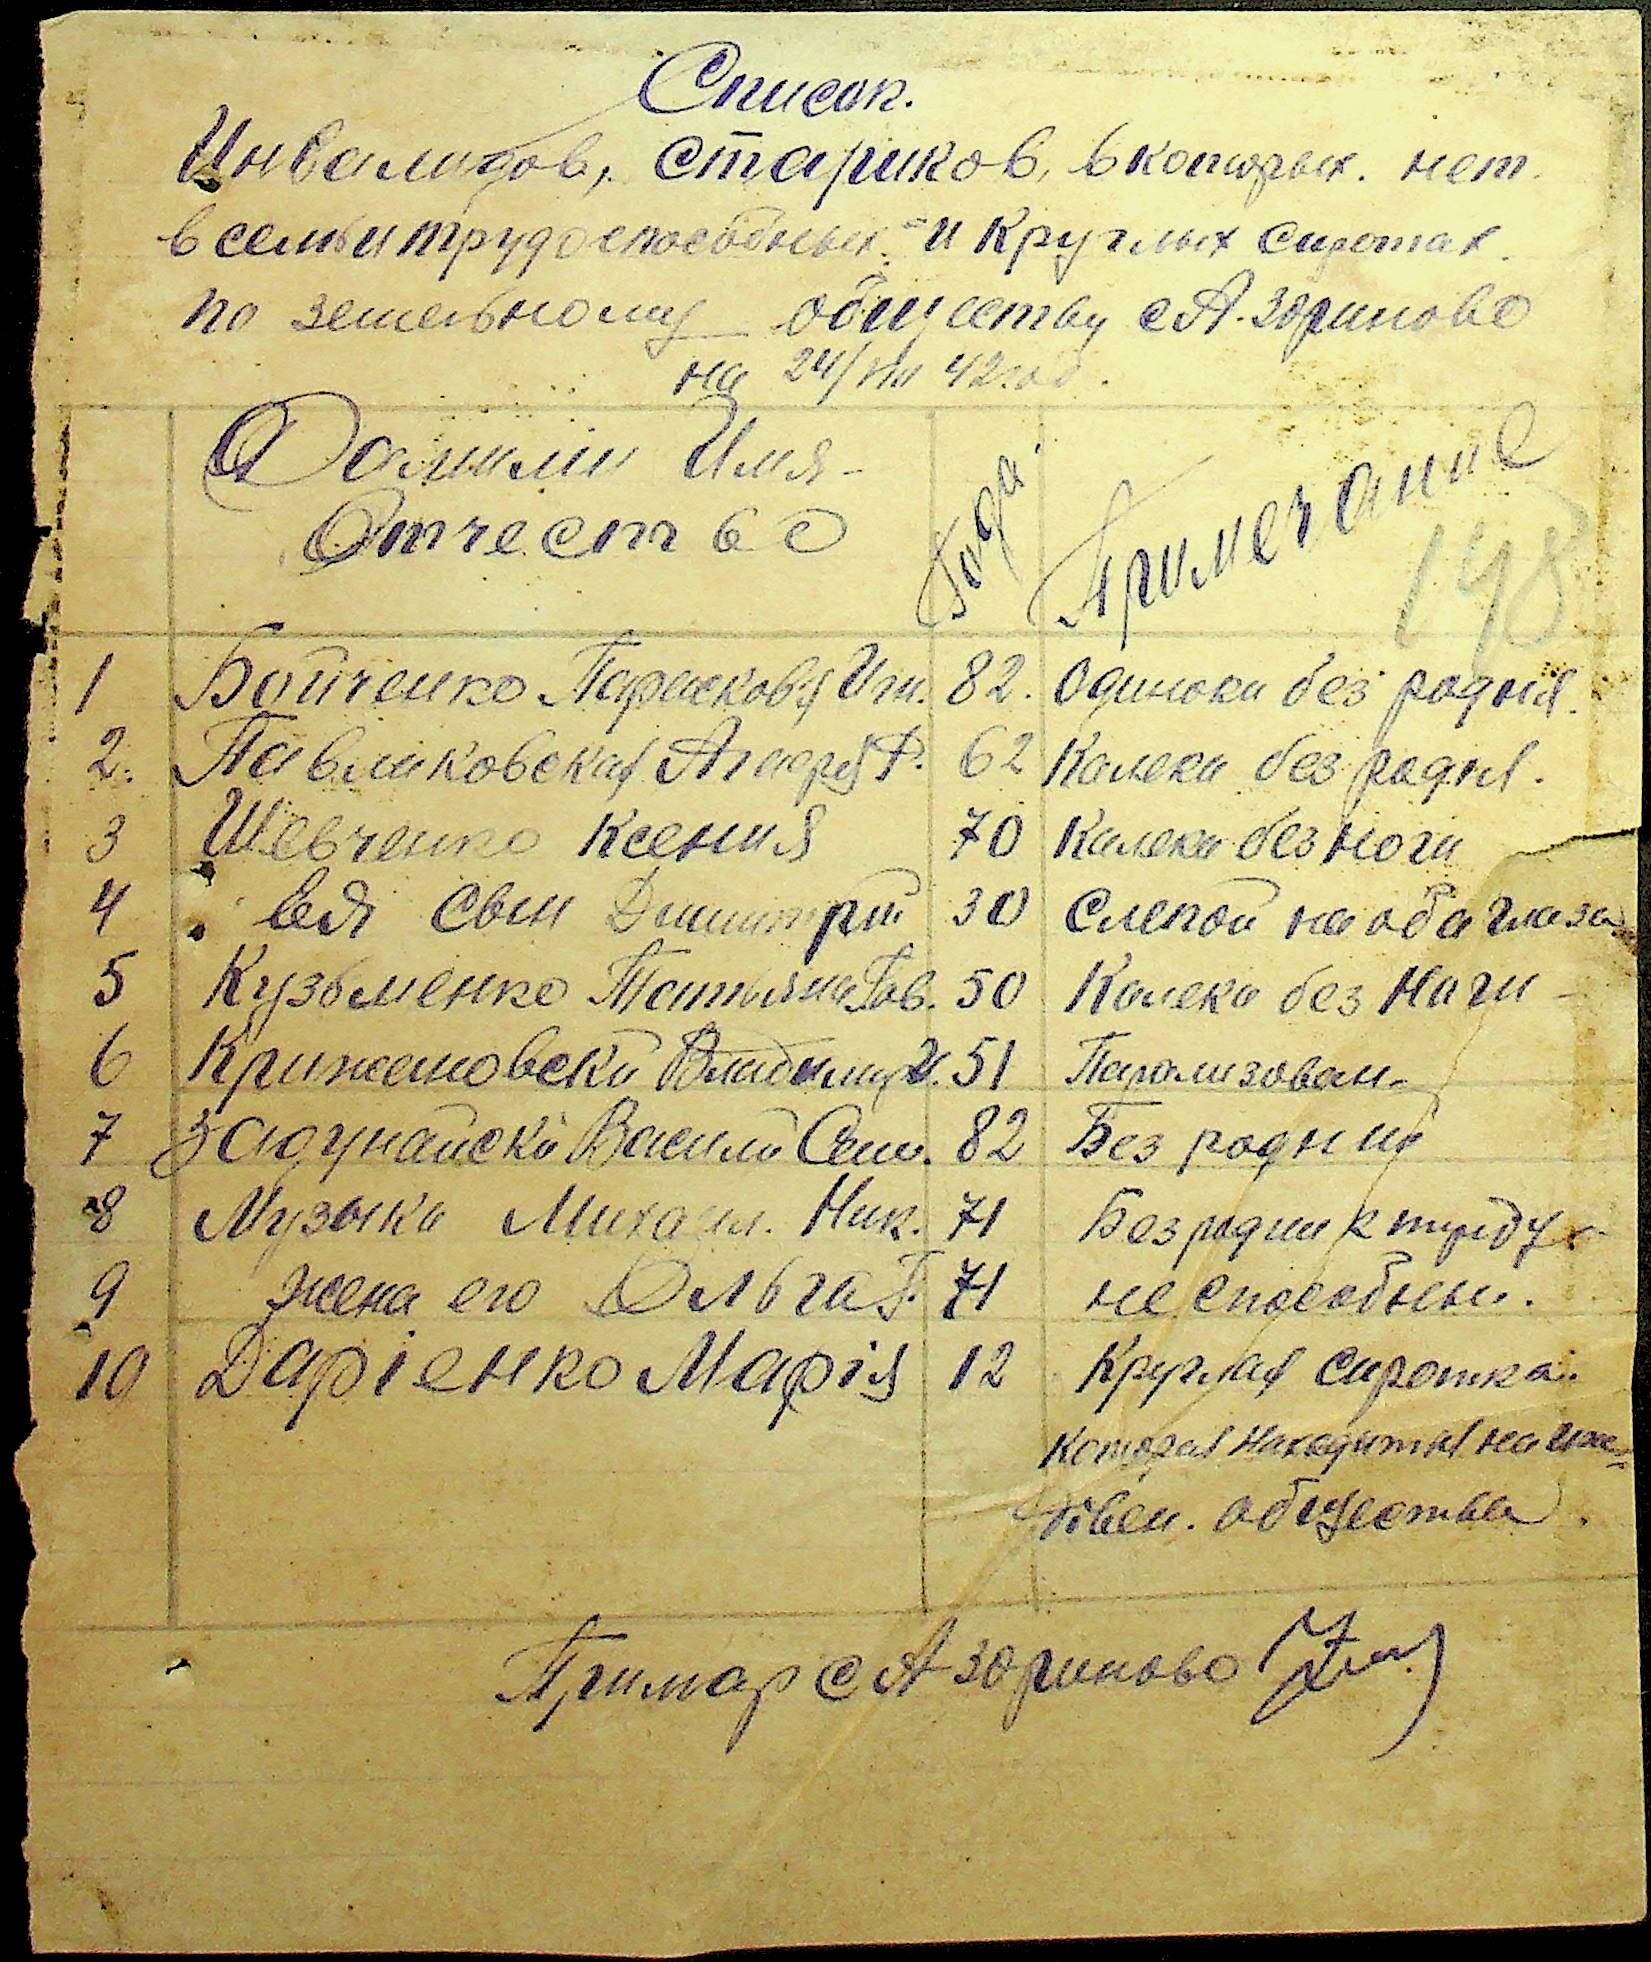 Список.
Инвалидов, стариков, в которых. нет.
в семьи трудоспособных. и Круглых сиротах.
по земельному обществу с А. Зориново
на 24/ 42 год.
Фамили Имя-
Отчество
Года.
Примечание
148
1 Бойченко Парасковя Иг. 82. Одинока без родня.
2. Павликовская Агаф Ф. 62 Калека без родня.
3 Шевченко Ксения 70 Калека без ноги
4 Ея сын Дмитрй 30 Слепой на оба глаза
5 Кузьменко Татьяна Гав. 50 Калека без Наги
6 Крижановски Владимир И. 51 Парализован.
7 Задунайскй Василй Сем. 82 Без родний
8 Музыка Михаил. Ник. 71 Без родни к труду
9 жена его Ольга Г. 71 не способны.
10 Даріенко Марія 12 Круглая сиротка.
которая находится на иж-
дівен. общества.
Примар с А Зориново